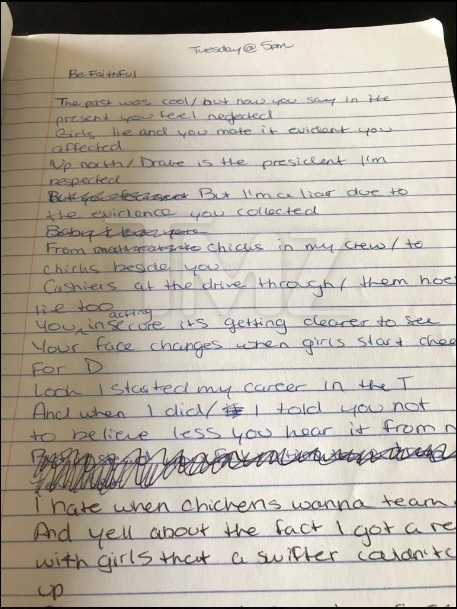 Tuesday @ 5pm
Be Faithful
The past was cool/ but now you say in the
present you feel neglected
Girls lie and you mate it evident you
affected
Up north/ Drake is the president I'm
respected
But I'm a liar due to
the evidence you collected
From chicks in my crew/ to
chicks beside you
Cashiers at the drive through/ them hoes
lie too
You, acting insecure its getting clearer to see
Your face changes when girls start chee
For D
Look I started my career in the T
And when I did/ I told you not
to believe less you hear it from
I hate when chickens wanna team
And yell about the fact I got a re
with girls that a swifter couldn't c
up